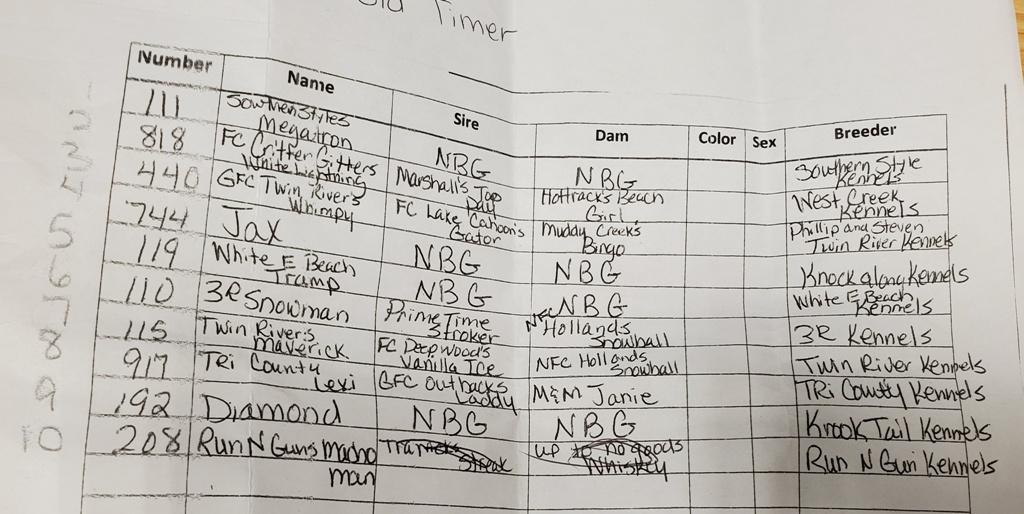 Old Timer
Number Name Sire Dam Color Sex Breeder
111 Southern Styles Megatron NBG NBG Southern Style Kennels
818 FC Critter Gitters White Lightning Marshall's Top Day Hottrack's Beach Girl West Creek Kennels
440 GFC Twin River's Whimpy FC Lake Cahoon's Gator Muddy Creek's Bingo Phillip and Steven Twin River Kennels
744 Jax NBG NBG Knock along Kennels
119 White E Beach Tramp NBG NBG White E Beach Kennels
110 3R Snowman Prime Time Stroker NFC Hollands Snowball 3R Kennels
115 Twin River's Maverick FC Deepwood's Vanilla Ice NFC Hollands Snowball Twin River Kennels
917 TRi County Lexi GFC Outbacks Laddy M&M Janie TRi County Kennels
192 Diamond NBG NBG Krook Tail Kennels
208 Run N Guns Macho Man Streak up to no goods Whiskey Run N Gun Kennels
8
9
10